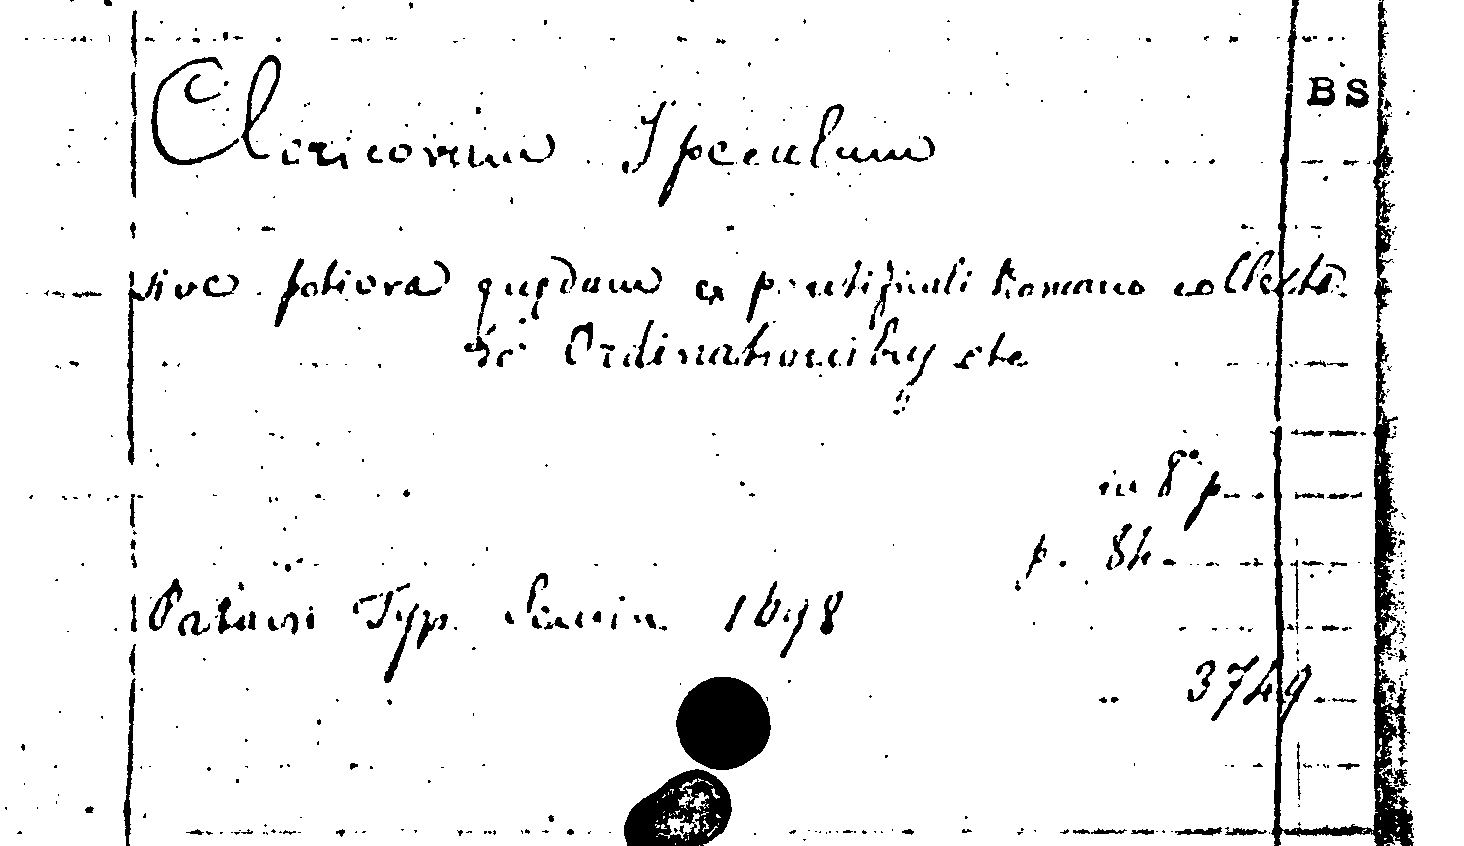 BS
Clericorum Speculum
sive potiora quędam ex pontificali Romano collecta
Ordinationibus etc
in 8° p
p. 84
Patavii Typ. Semin. 1698
3749